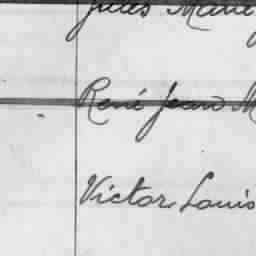 Jules Marie
René Jean M
Victor Louis